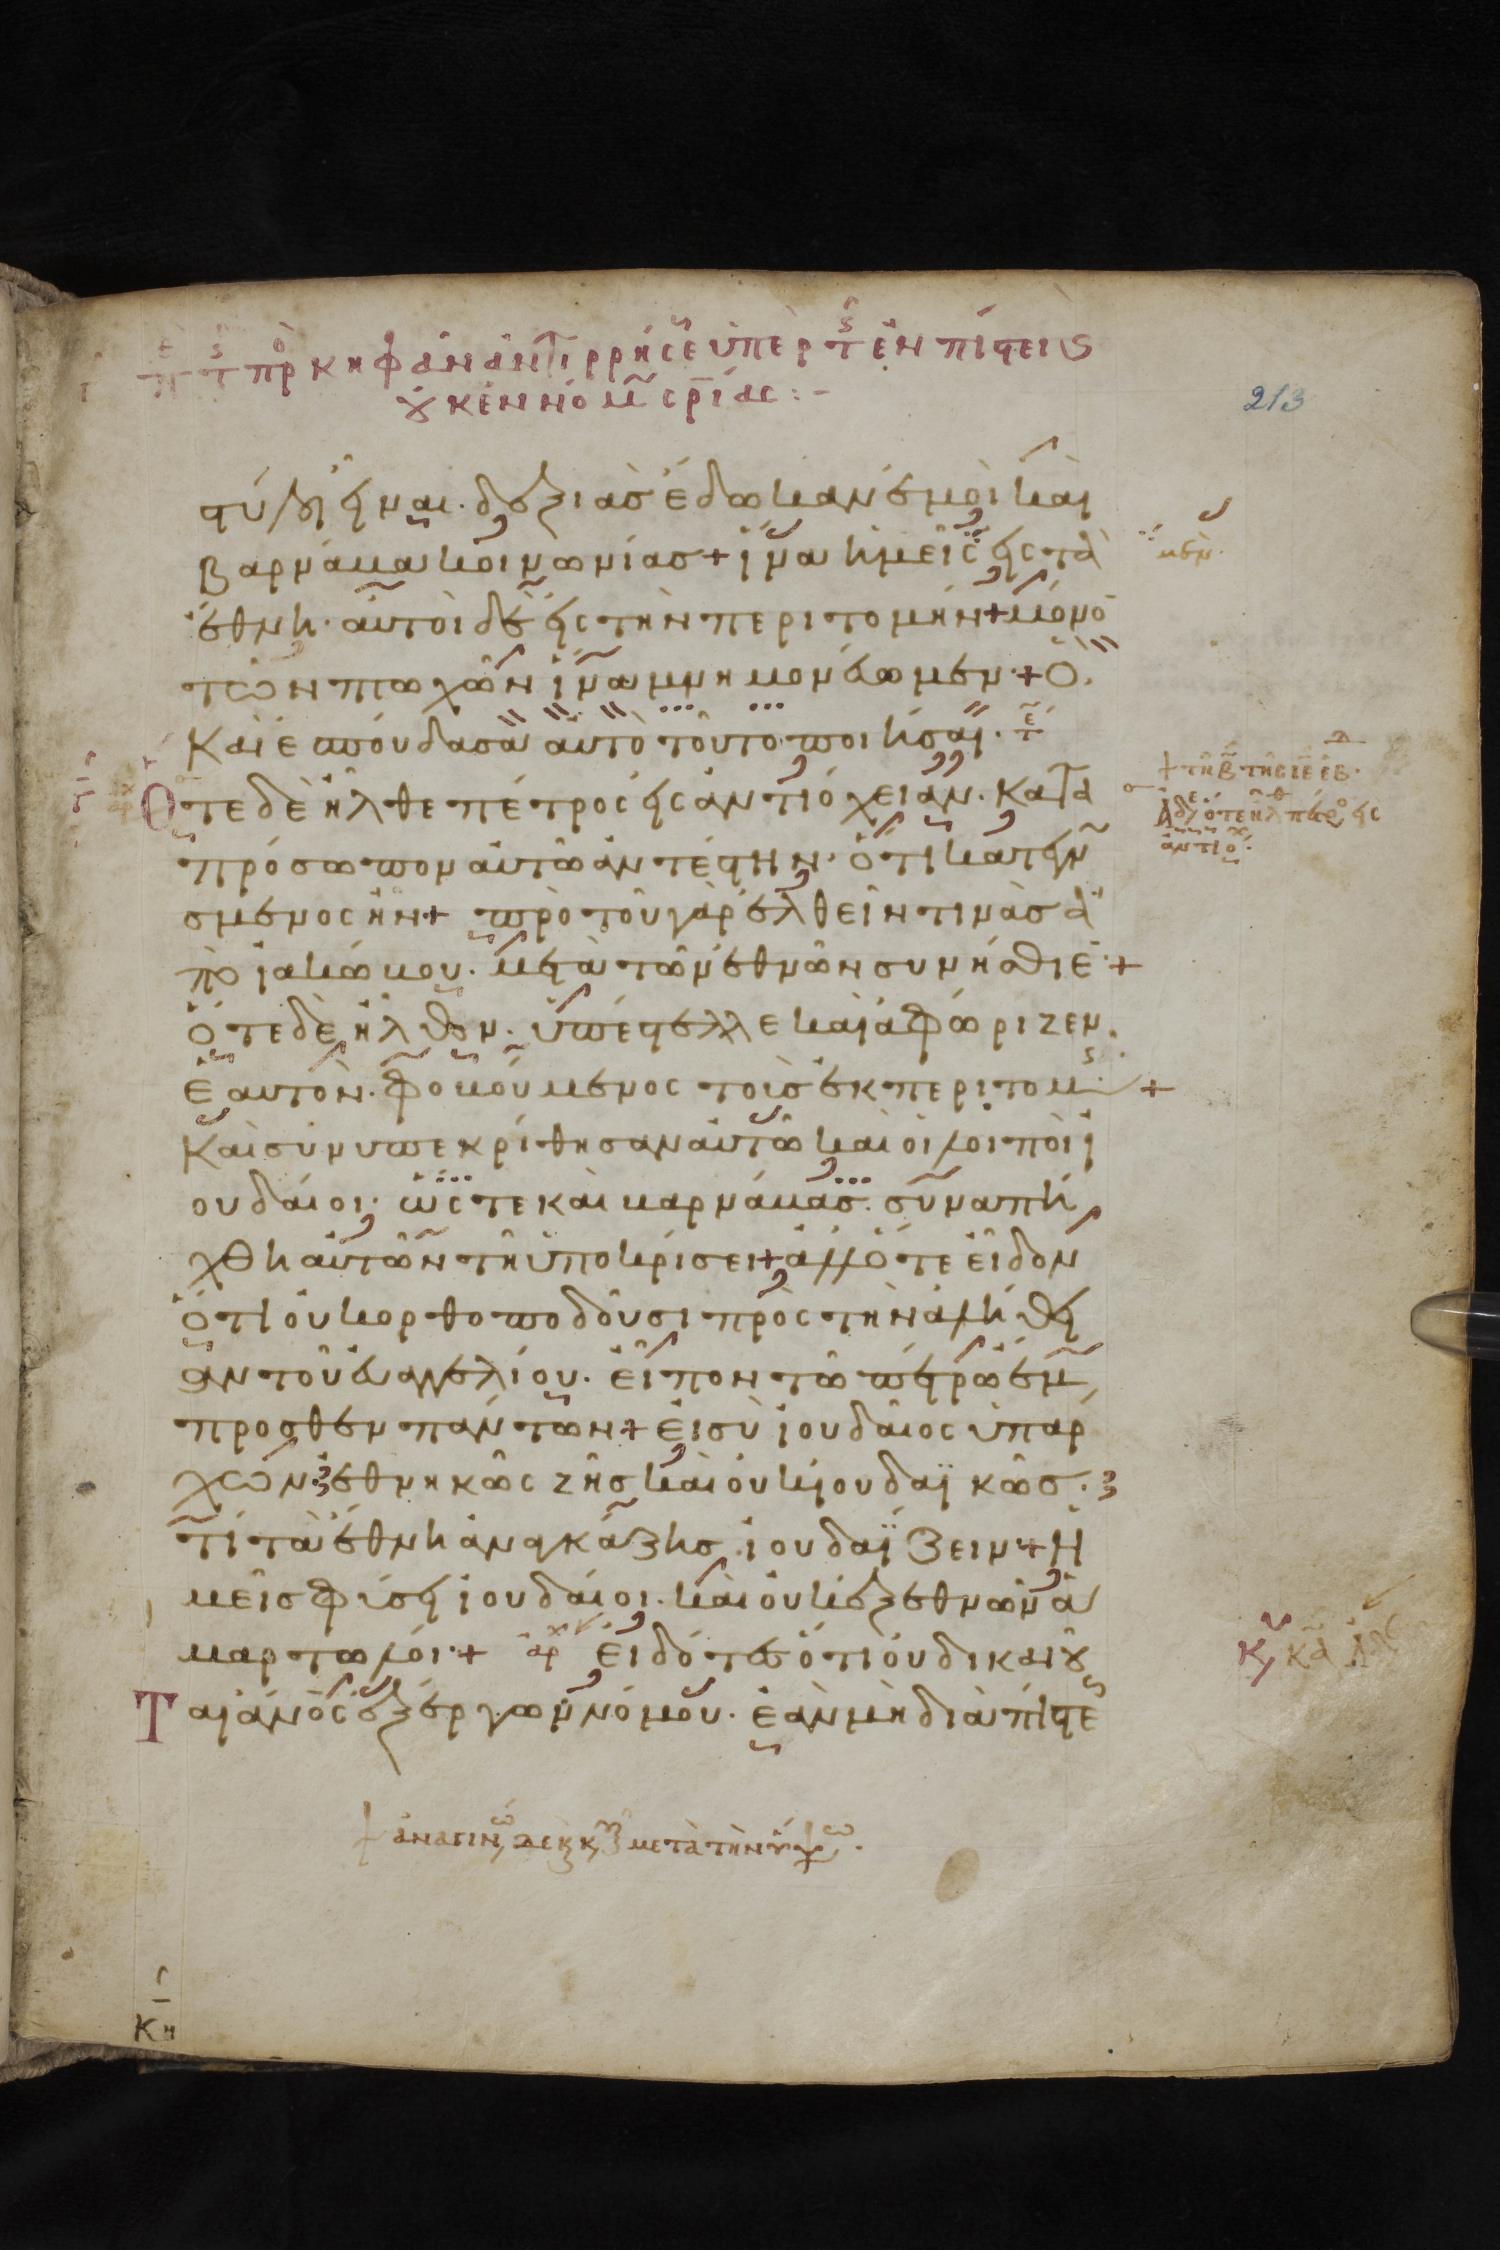 πρ κηφὰν ἀντιρρήσε ὑπὲρ τ ἐν πίστει ς
οὐκ ἐν νόμ σρίας :-
213
στύλοι εἶναι· δεξιὰσ ἔδωκαν ἐμοὶ καὶ
βαρνάβα κοινωνίασ + ἵνα ἡμεῖς εἰς τὰ
μὲν·
ἔθνη· αὐτοὶ δὲ εἰς τὴν περιτομήν + μόνο
τῶν πτωχῶν ἵνα μνημονεύωμεν· + Ὃ
Καὶ ἐσπούδασα αὐτὸ τοῦτο ποιῆσαι· τε
Ὅτε δὲ ἦλθε πέτρος εἰς ἀντιόχειαν· κατὰ
πρόσωπον αὐτῶ ἀντέστην· ὅτι κατεγν
σμένος ἦν + πρὸ τοῦ γὰρ ἐλθεῖν τινὰσ ἀ
πὸ ἰακώβου· μετὰ τῶν ἐθνῶν συνήσθιε· +
ὅτε δὲ ἦλθον· ὑπέστελλε καὶ ἀφώριζεν
ἑαυτὸν· φοβούμενος τοὺσ ἐκ περιτομ +
Καὶ συνυπεκρίθησαν αὐτῶ καὶ οἱ λοιποὶ ἰ
ουδαίοι· ὥς τε καὶ βαρνάβασ· συναπή
χθη αὐτῶν τῆ ὑποκρίσει + ἀλλ ὅτε εἶδον
ὅτι οὐκ ορθοποδοῦσι πρὸς τὴν ἀλήθει
αν τοῦ εὐαγγελίου· εἶπον τῶ πέτρω ἔμ
προσθεν παντων + εἰ σὺ ἰουδαῖος ὑπάρ
χων· ἐθνηκῶς ζῆσ καὶ οὐκ ἰουδαϊκῶσ·
τί τὰ ἔθνη ἀναγκάζησ ἰουδαΐζειν + Ἡ
μεῖσ φύσει ἰουδαίοι· καὶ οὐκ ἐξ εθνων ἁ
μαρτωλόι· + ἀρχ Εἰδότεσ ὅτι οὐ δικαιοῦ
Ται ἄνος ἐξ ἔργων νόμου· ἐὰν μὴ διὰ πίστε
κη